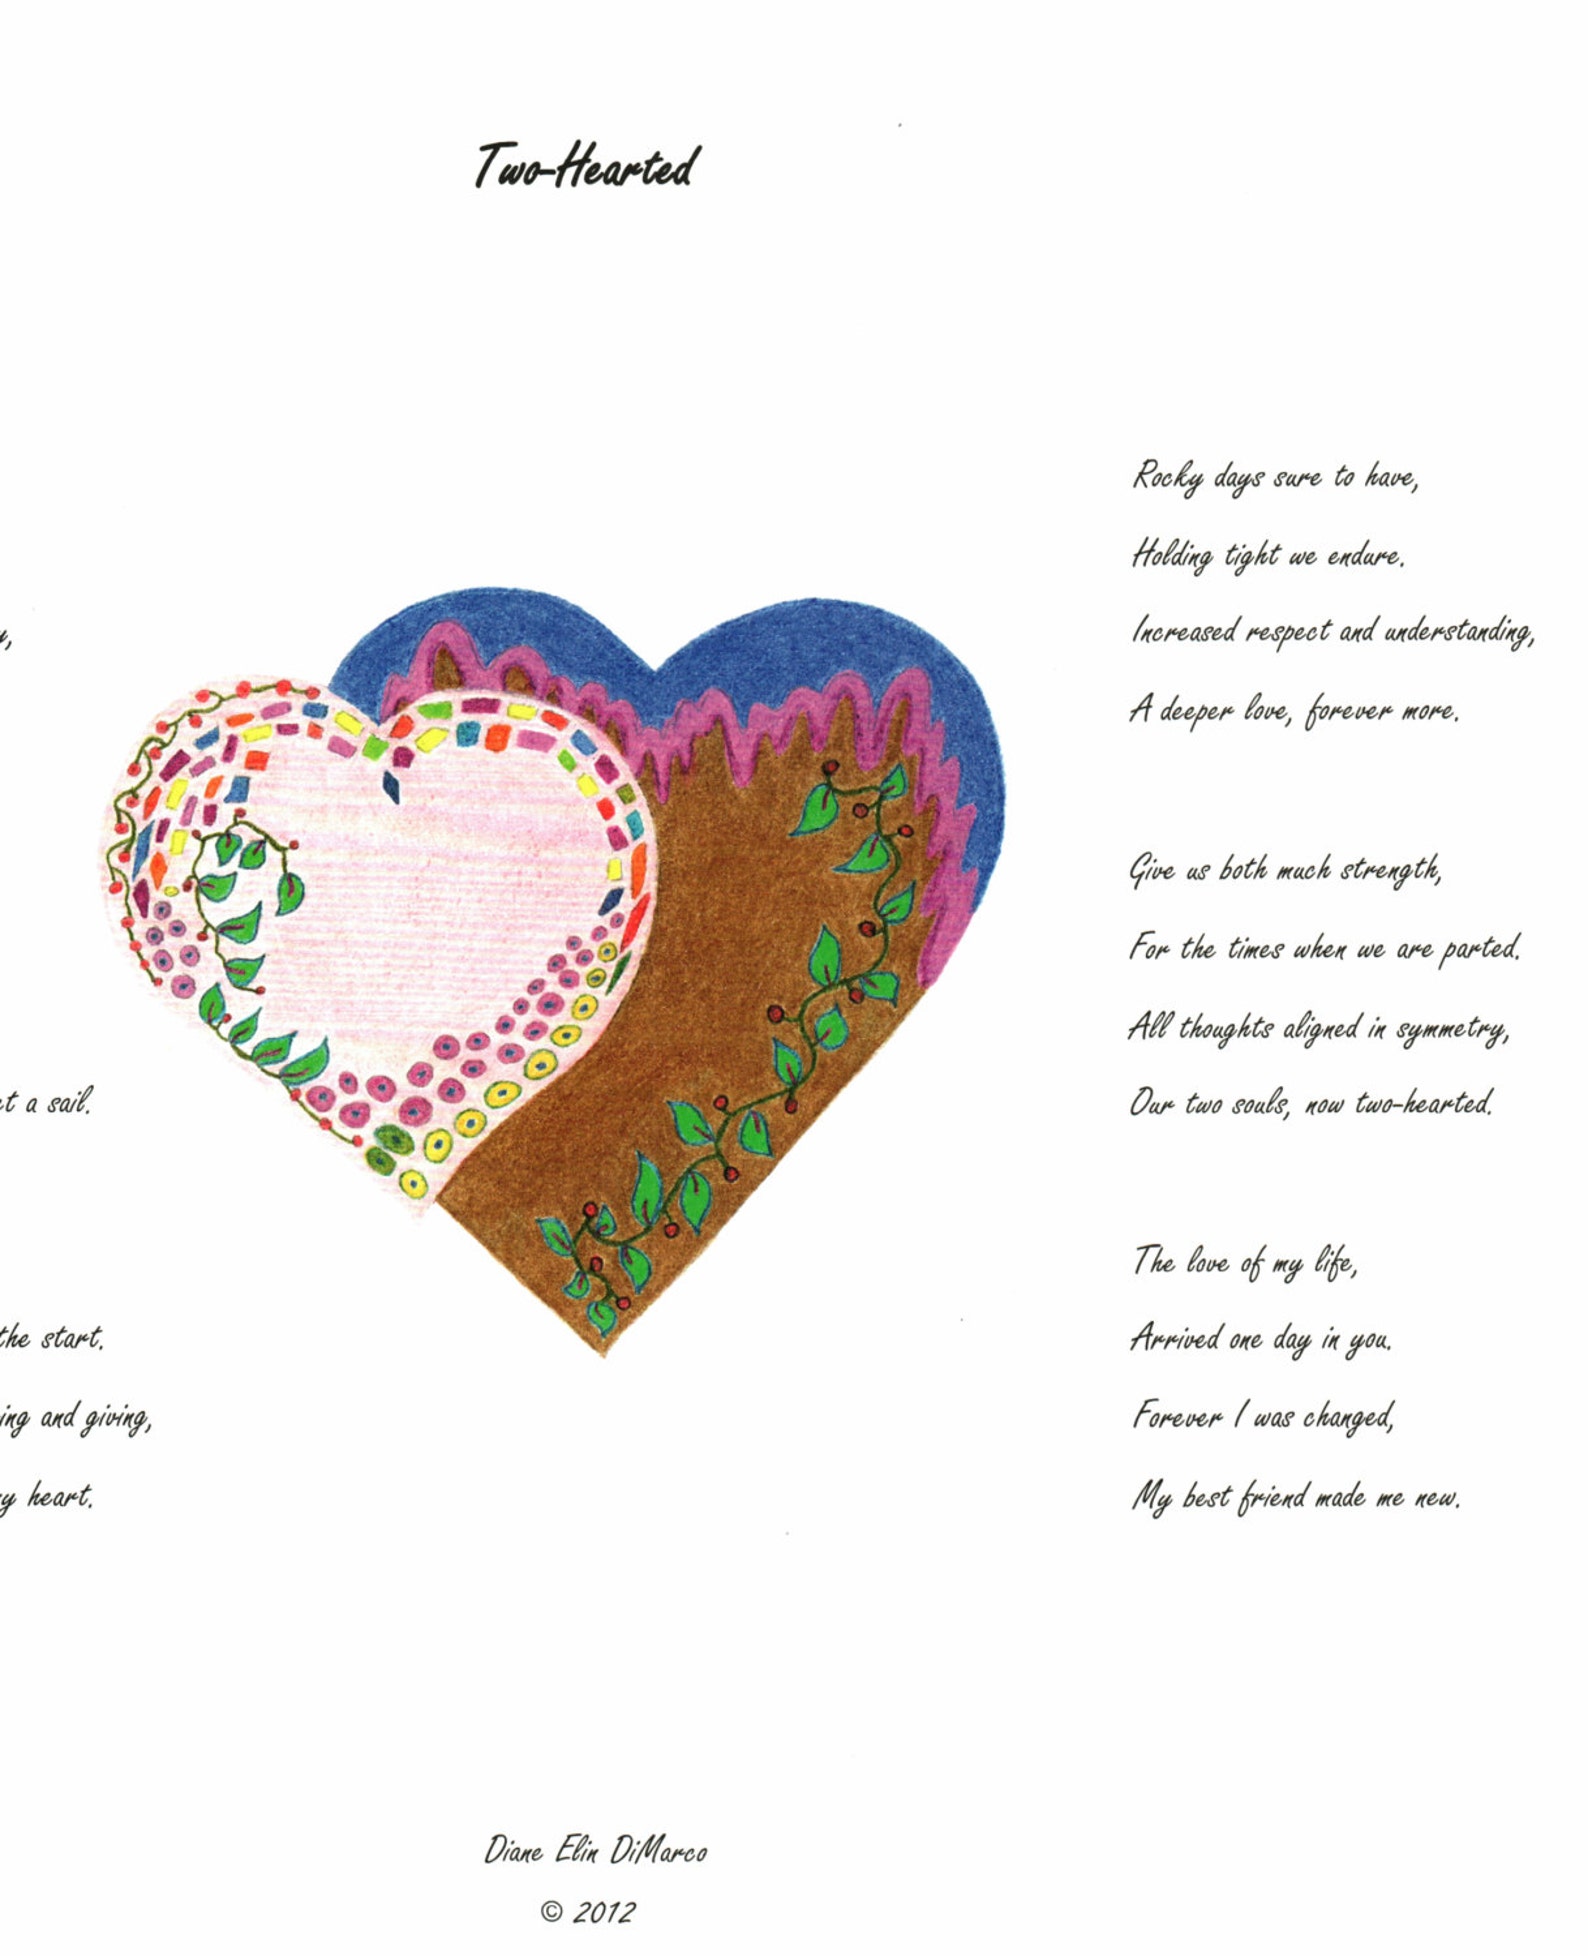 Two-Hearted
t a sail.
the start.
ing and giving,
y heart.
Rocky days sure to have,
Holding tight we endure.
Increased respect and understanding,
A deeper love, forever more.
Give us both much strength,
For the times when we are parted.
All thoughts aligned in symmetry,
Our two souls, now two-hearted.
The love of my life,
Arrived one day in you.
Forever I was changed,
My best friend made me new.
Diane Elin DiMarco
© 2012